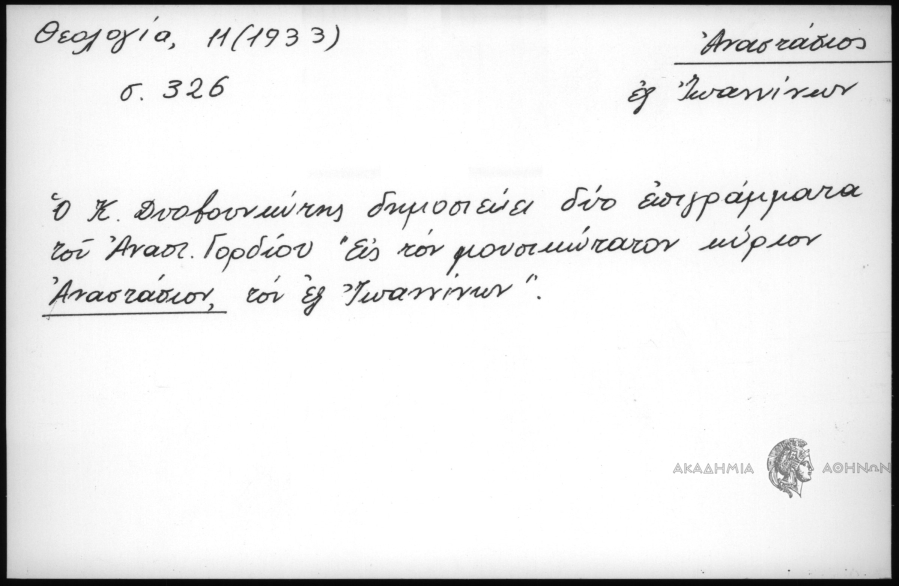 Θεολογία, 11 (1933)
σ. 326
Ἀναστάσιος
ἐξ Ἰωαννίνων
Ὁ Κ. Δυοβουνιώτης δημοσιεύει δύο ἐπιγράμματα
τοῦ Ἀναστ. Γορδίου "Εἰς τόν μουσικώτατον κύριον
Ἀναστάσιον, τόν ἐξ Ἰωαννίνων".
ΑΚΑΔΗΜΙΑ ΑΘΗΝΩΝ